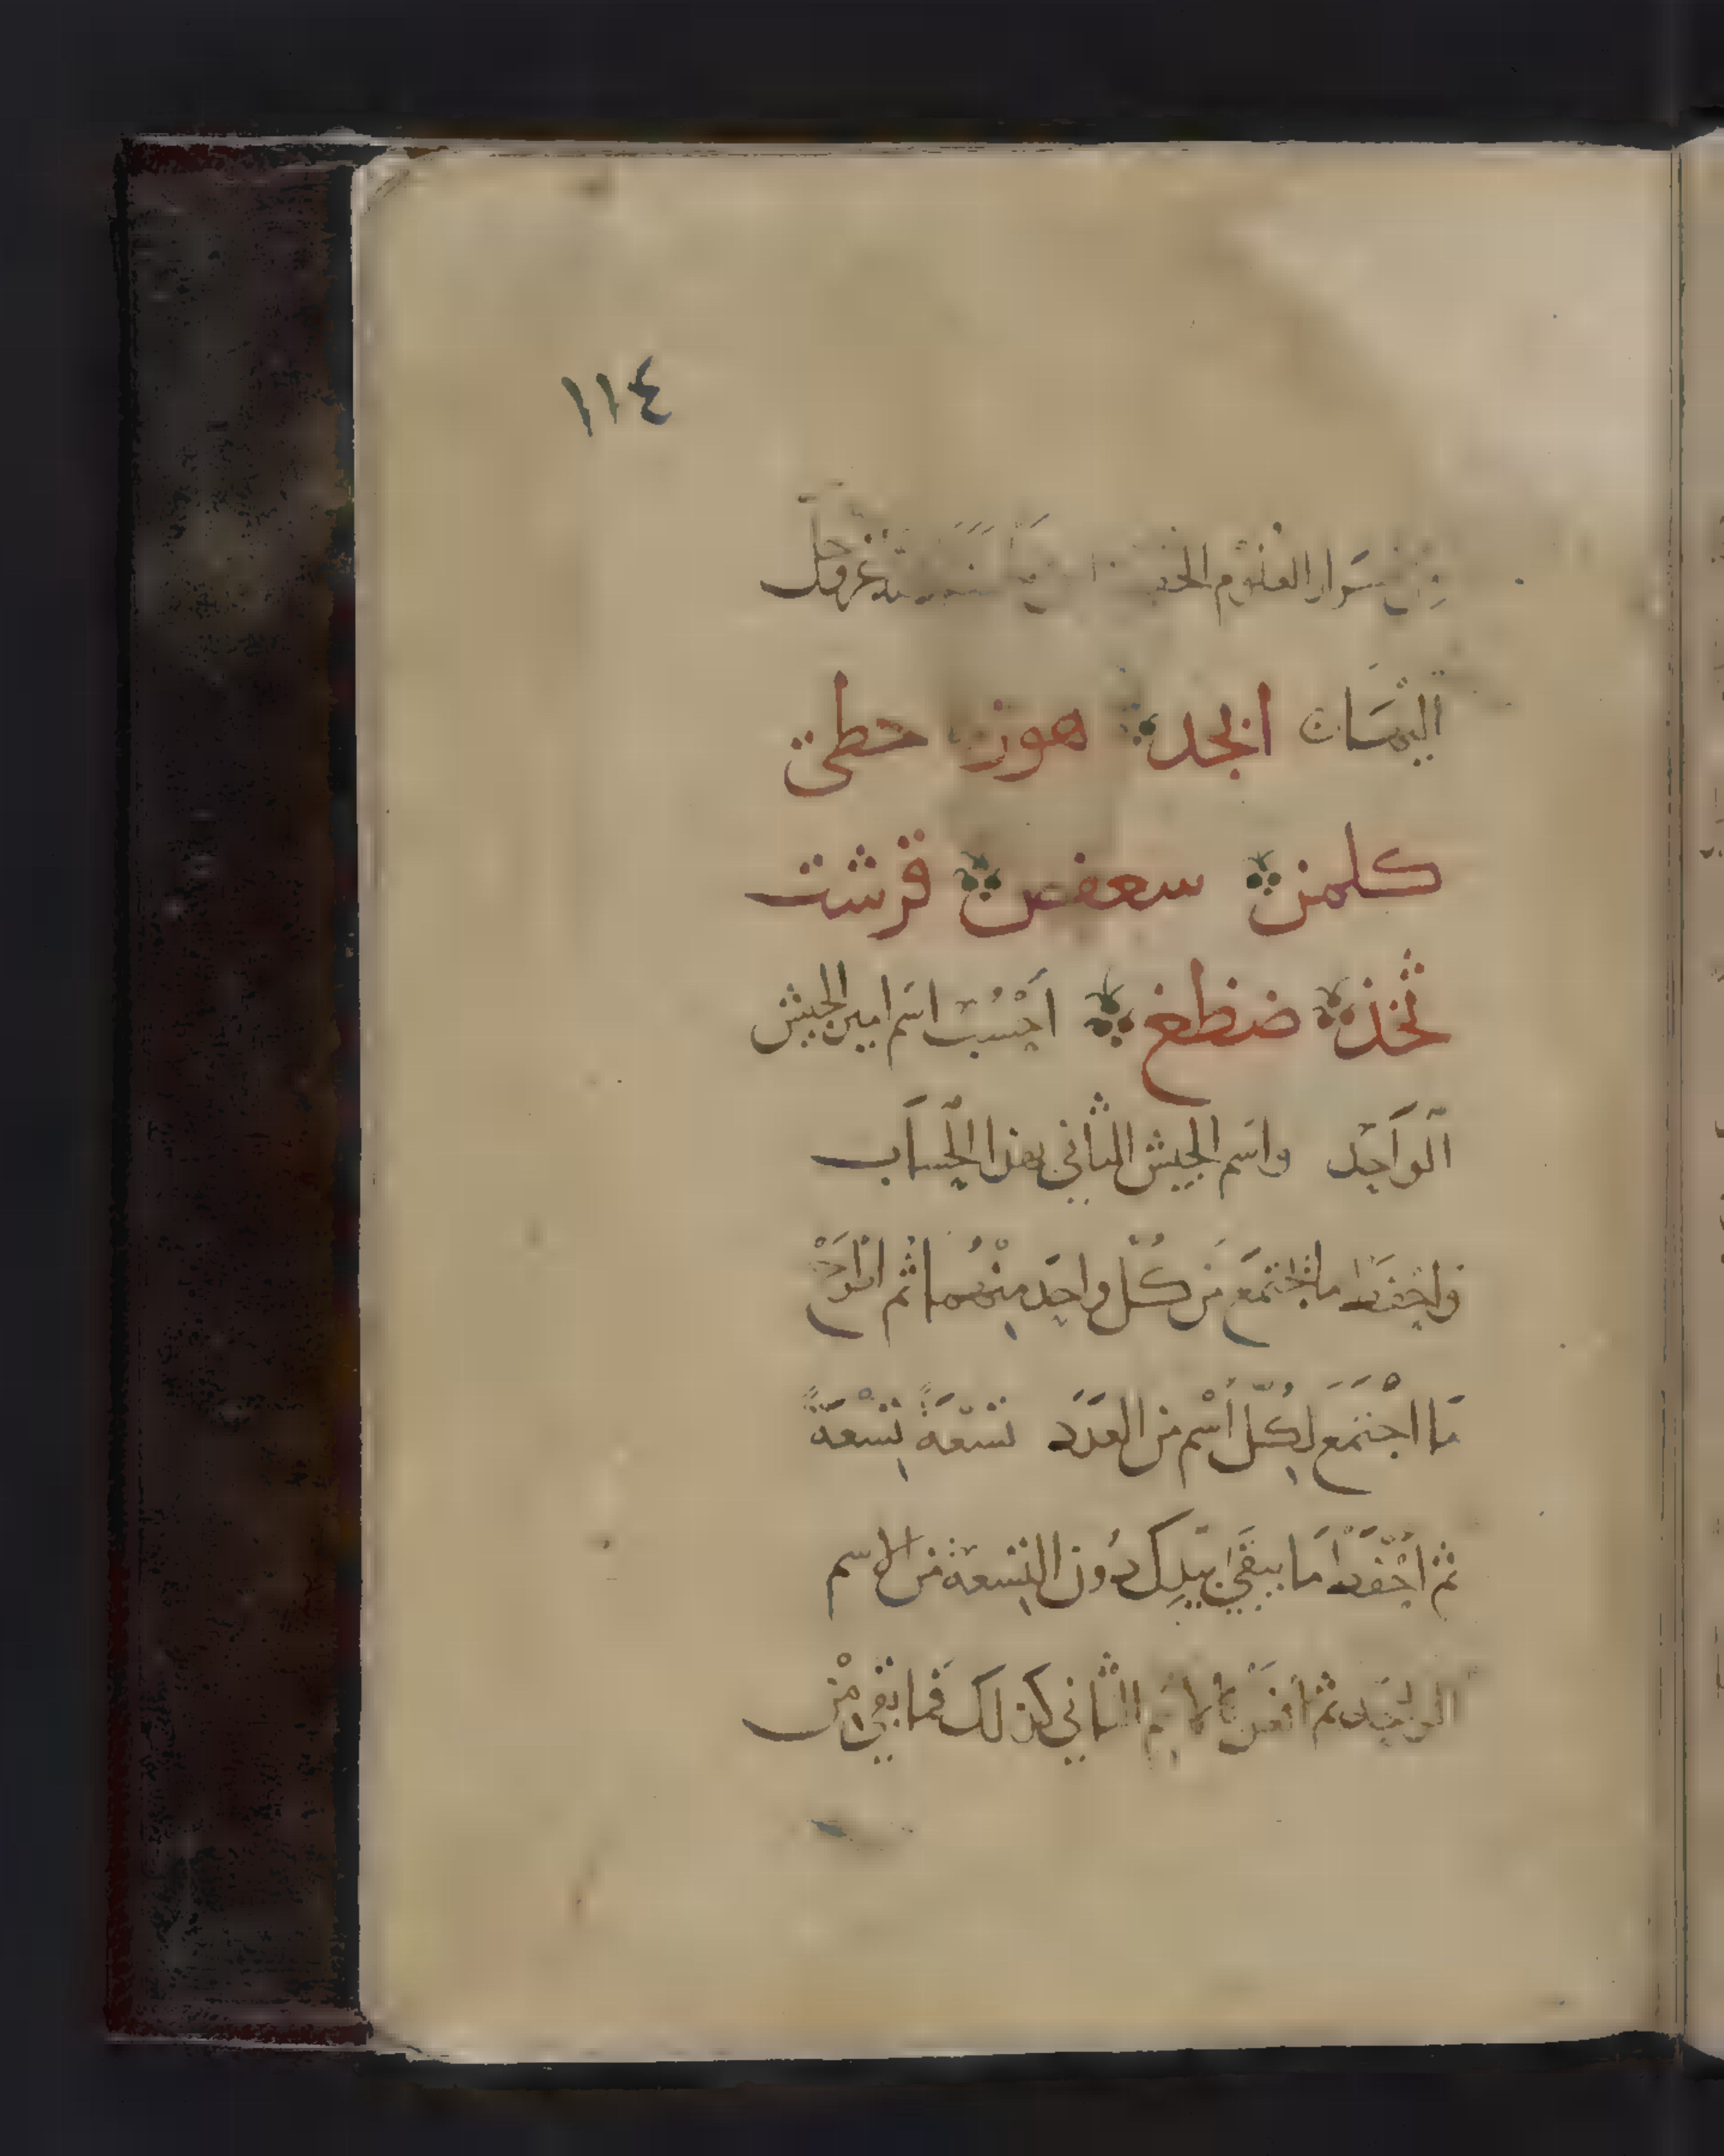 ١١٤
العلوم عز وجل
ابجد هوز حطي
كلمن سعفص قرشت
ثخذ ضظغ اَحْسُبْ اسَم امير الجيش
اَلواَحِد واسَم الجيش الثاَني بهذا الِحساَب
واحِفَظ ما اجْتمَعَ مَن كُل واحَد مِنْهُما ثُم اطْرَحْ
مَا اجْتَمَعَ لِكُلّ اُسْم من العَدَد تسْعَةً تِسْعَةً
ثم اَحْفَظْ مَا يبقَي بيَدِك دُون التِسعة من الاسم
الواحِد ثم الاسم الثاَني كذلك فَما بَقِي مِنْ